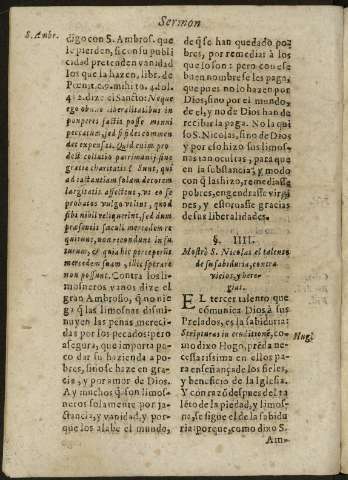 Sermon
S. Ambr.
digo con S. Ambros. que
le pierden, si con su publi
cidad pretenden vanidad
los que la hazen, lib. de
dize el Sancto: Neque
ego obuio liberalitatibus in
pauperes factis posse minui
peccatum, sed si fides commen
det expensas. Quid enim pro
dest collatio patrimonij sine
gratia charitatis? Sunt, qui
ad iactantiam solam decorem
largitatis affectent, vt eo se
probatos vulgo velint, quod
sibi nihil reliquerint, sed dum
præsentis sæculi mercedem re
quirunt, non recondunt in fu
turum, & quia hic perceperint
mercedem suam, illic sperare
non possunt. Contra los li-
mosneros vanos dize el
gran Ambrosio, q̃ no nie
ga q̃ las limosnas dismi-
nuyen las penas mereci-
das por los pecados: pero
asegura, que importa po
co dar su hazienda a po-
bres, si no se haze en gra-
cia, y por amor de Dios.
Ay muchos q̃ son limos-
neros solamente por ja-
ctancia, y vanidad, y por-
que los alabe el mundo,
de q̃ se han quedado po-
bres, por remediar à los
que lo son: pero con ese
buen nombre se les paga,
que pues no lo hazen por
Dios, sino por el mundo,
de el, y no de Dios han de
recibir la paga. No la qui
so S. Nicolas, sino de Dios
y por eso hizo sus limos-
nas tan ocultas, para que
en la substancia, y modo
con q̃ las hizo, remediasse
pobres, engendrasse virgi
nes, y estoruasse gracias
de sus liberalidades.
§. IIII.
Mostrò S. Nicolas el talento
de su sabiduria, contra
vicios, y here-
gias.
EL tercer talento, que
comunica Dios à sus
Prelados, es la sabiduria:
Scripturas in eruditione, co-
Hug.
mo dixo Hugo, prẽda ne-
cessarissima en ellos pa-
ra enseñança de los fieles,
y beneficio de la Iglesia.
Y con razõ despues del ta
lẽto de la piedad, y limos-
na, se sigue el de la sabidu
ria: porque, como dixo S.
Am-